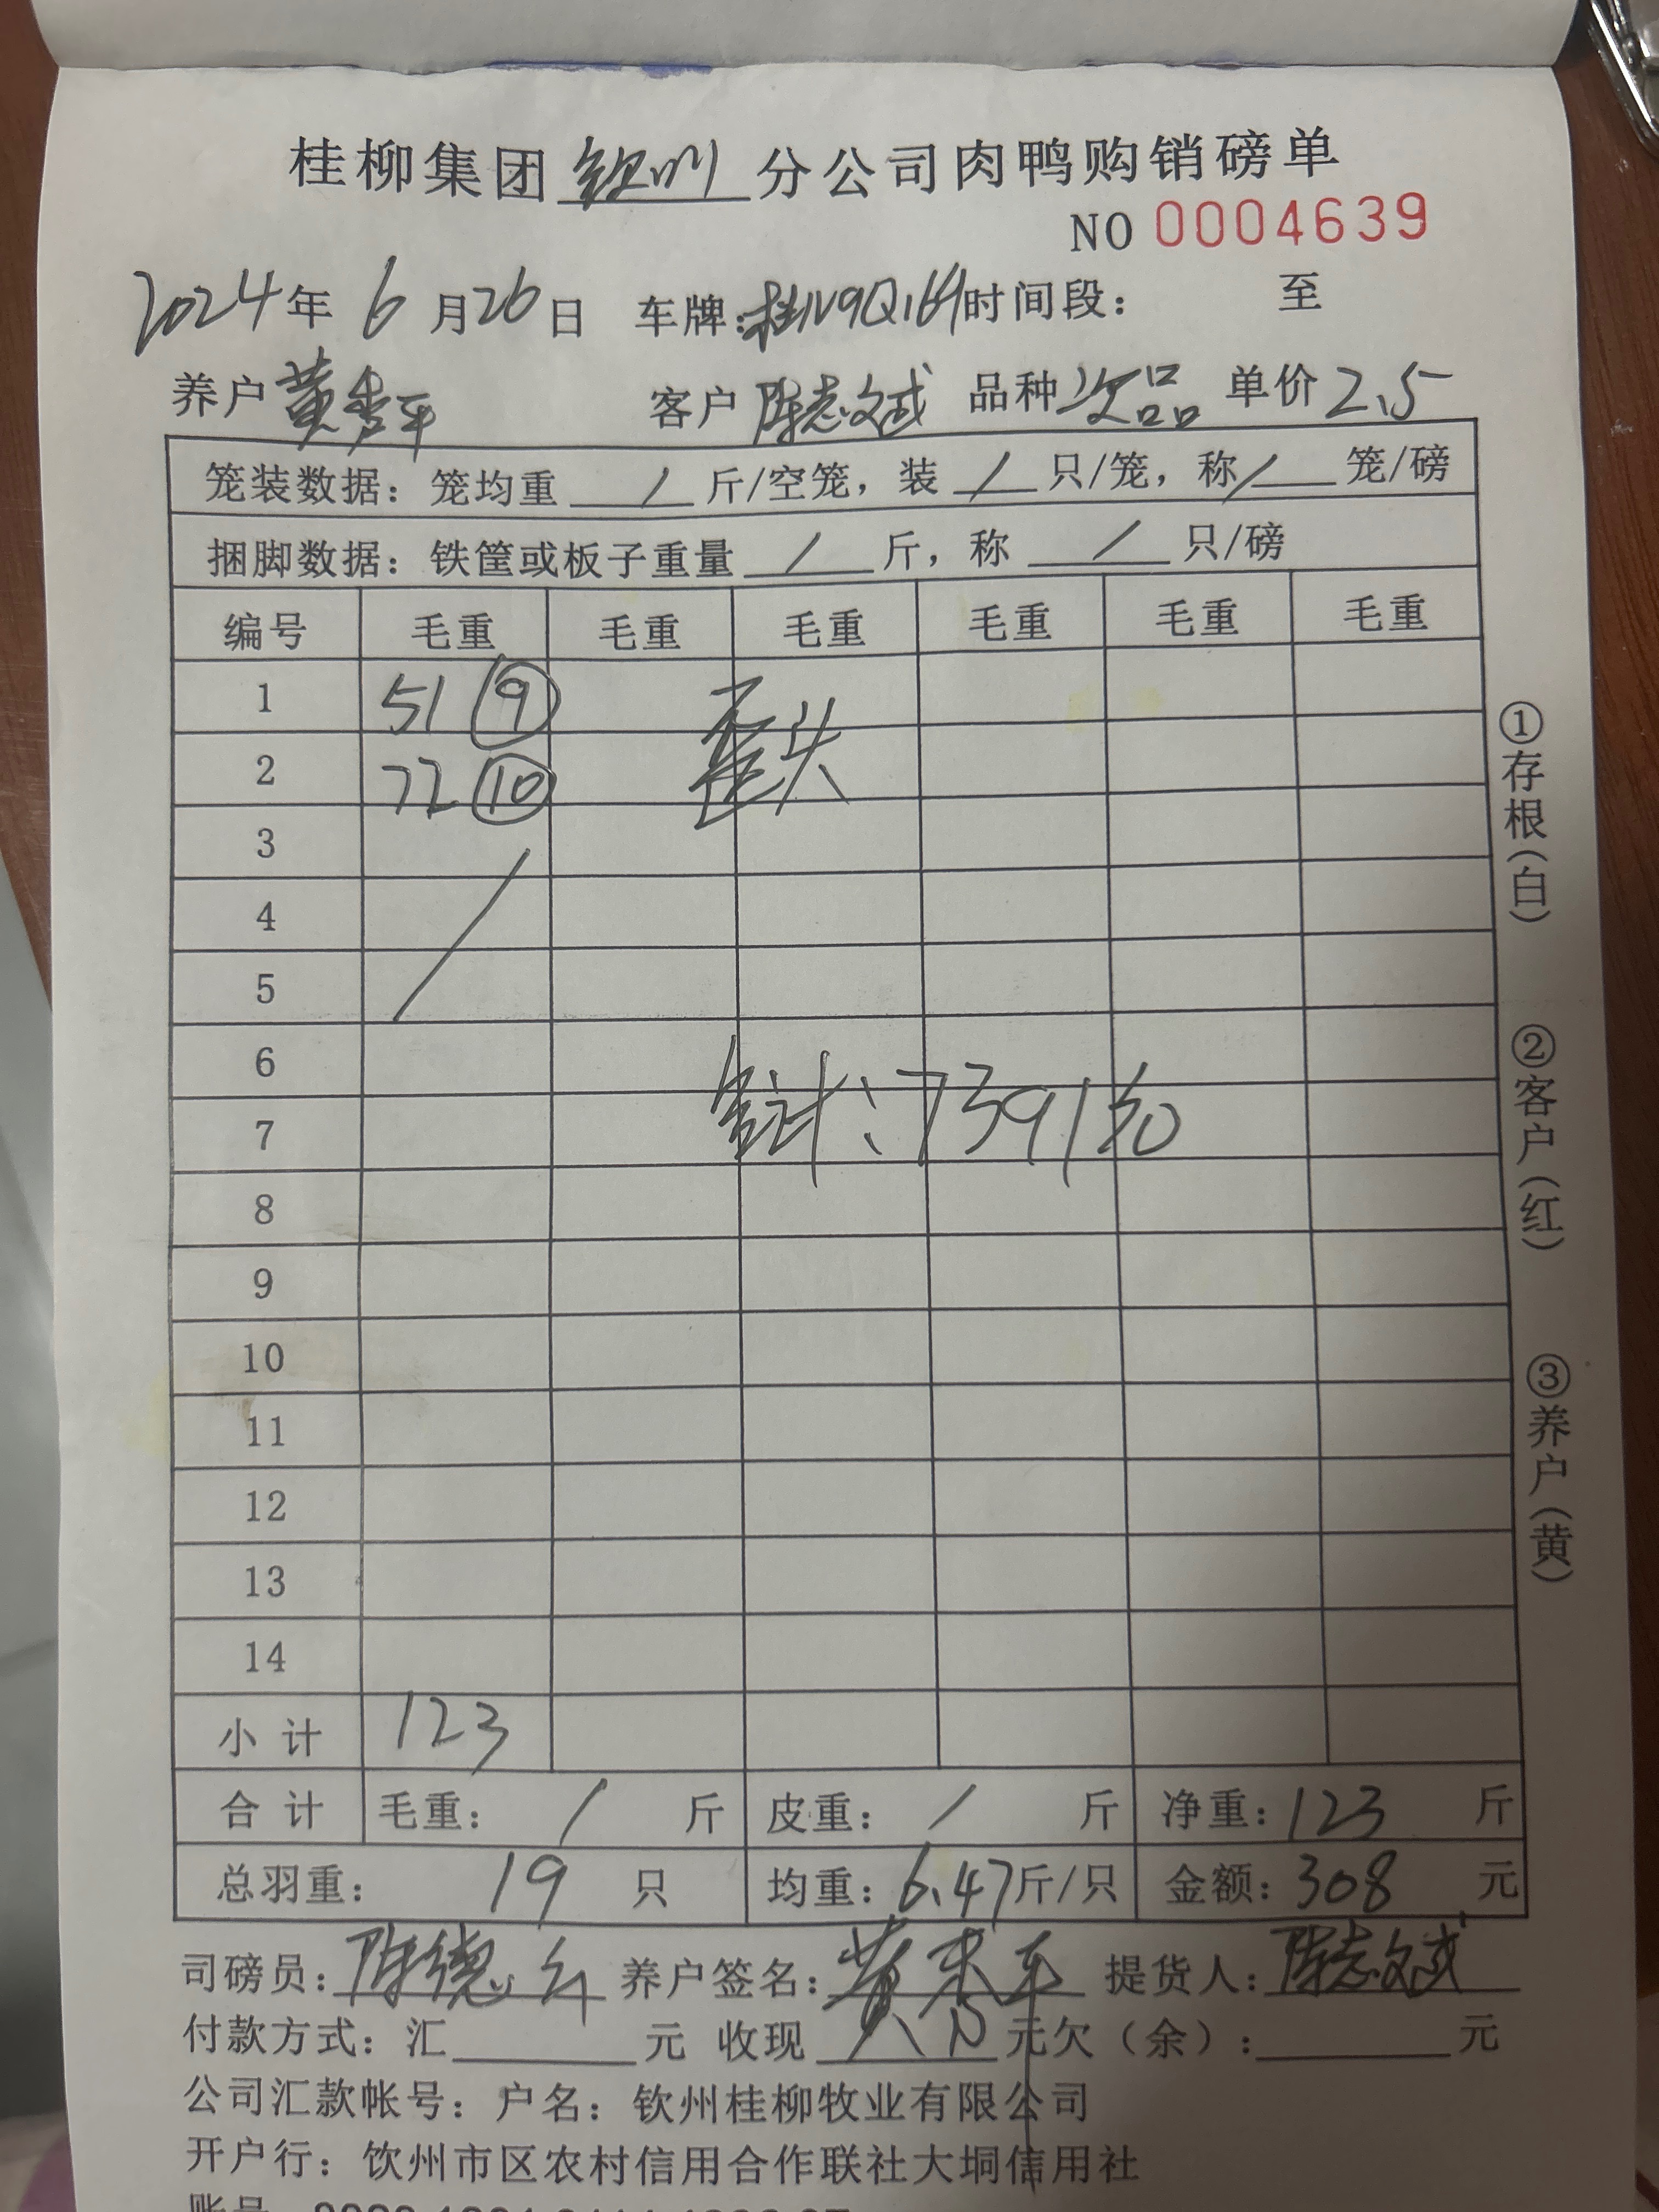 桂柳集团钦州分公司肉鸭购销磅单
NO 0004639
2024年 6月26日 车牌:桂N9Q169时间段: 至
养户 黄秀平 客户 陈志斌 品种 次品 单价 2.5
笼装数据: 笼均重 / 斤/空笼, 装 / 只/笼, 称 / 笼/磅
捆脚数据: 铁筐或板子重量 / 斤, 称 / 只/磅
编号 毛重 毛重 毛重 毛重 毛重 毛重
1 51 ⑨
2 72 ⑩ 歪头
3
4
5
6
7 合计:7391元
8
9
10
11
12
13
14
小计 123
合计 毛重: / 斤 皮重: / 斤 净重: 123 斤
总羽重: 19 只 均重: 6.47斤/只 金额: 308 元
司磅员: 陈德 养户签名: 黄秀平 提货人: 陈志斌
付款方式: 汇 元 收现 元欠(余): 元
公司汇款帐号: 户名: 钦州桂柳牧业有限公司
开户行: 钦州市区农村信用合作联社大垌信用社
账号
①存根(白)
②客户(红)
③养户(黄)